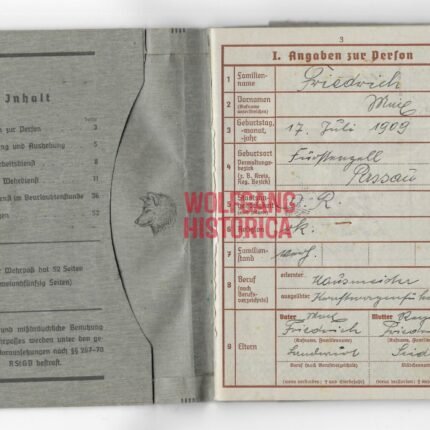 Inhalt
Seite
zur Person 3
und Aushebung 5
rbeitsdienst 8
Wehrdienst 11
im Beurlaubtenstande 36
gen 52
Wehrpaß hat 52 Seiten
weiundfünfzig Seiten)
und mißbräuchliche Benutzung
hrpasses werden unter den ge-
oraussetzungen nach §§ 267-70
RStGB bestraft.
WOLFGANG
HISTORICA
3
I. Angaben zur Person
1 Familien-
name
Friedrich
2 Vornamen
(Rufname
unterstreichen)
3 Geburtstag,
-monat,
-jahr
17. Juli 1909
4 Geburtsort
Verwaltungs-
bezirk
(z. B. Kreis,
Reg. Bezirk)
Fürstenzell
Passau
5 D. R.
6 k. —
7 Familien-
stand
verh.
8 Beruf
(nach
Berufs-
verzeichnis)
erlernter
Hausmeister
ausgeübter
9 Eltern
Vater
Friedrich
(Rufname, Familienname)
Landwirt
Beruf (nach Berufsverzeichnis)
Mutter
(Rufname, Familienname)